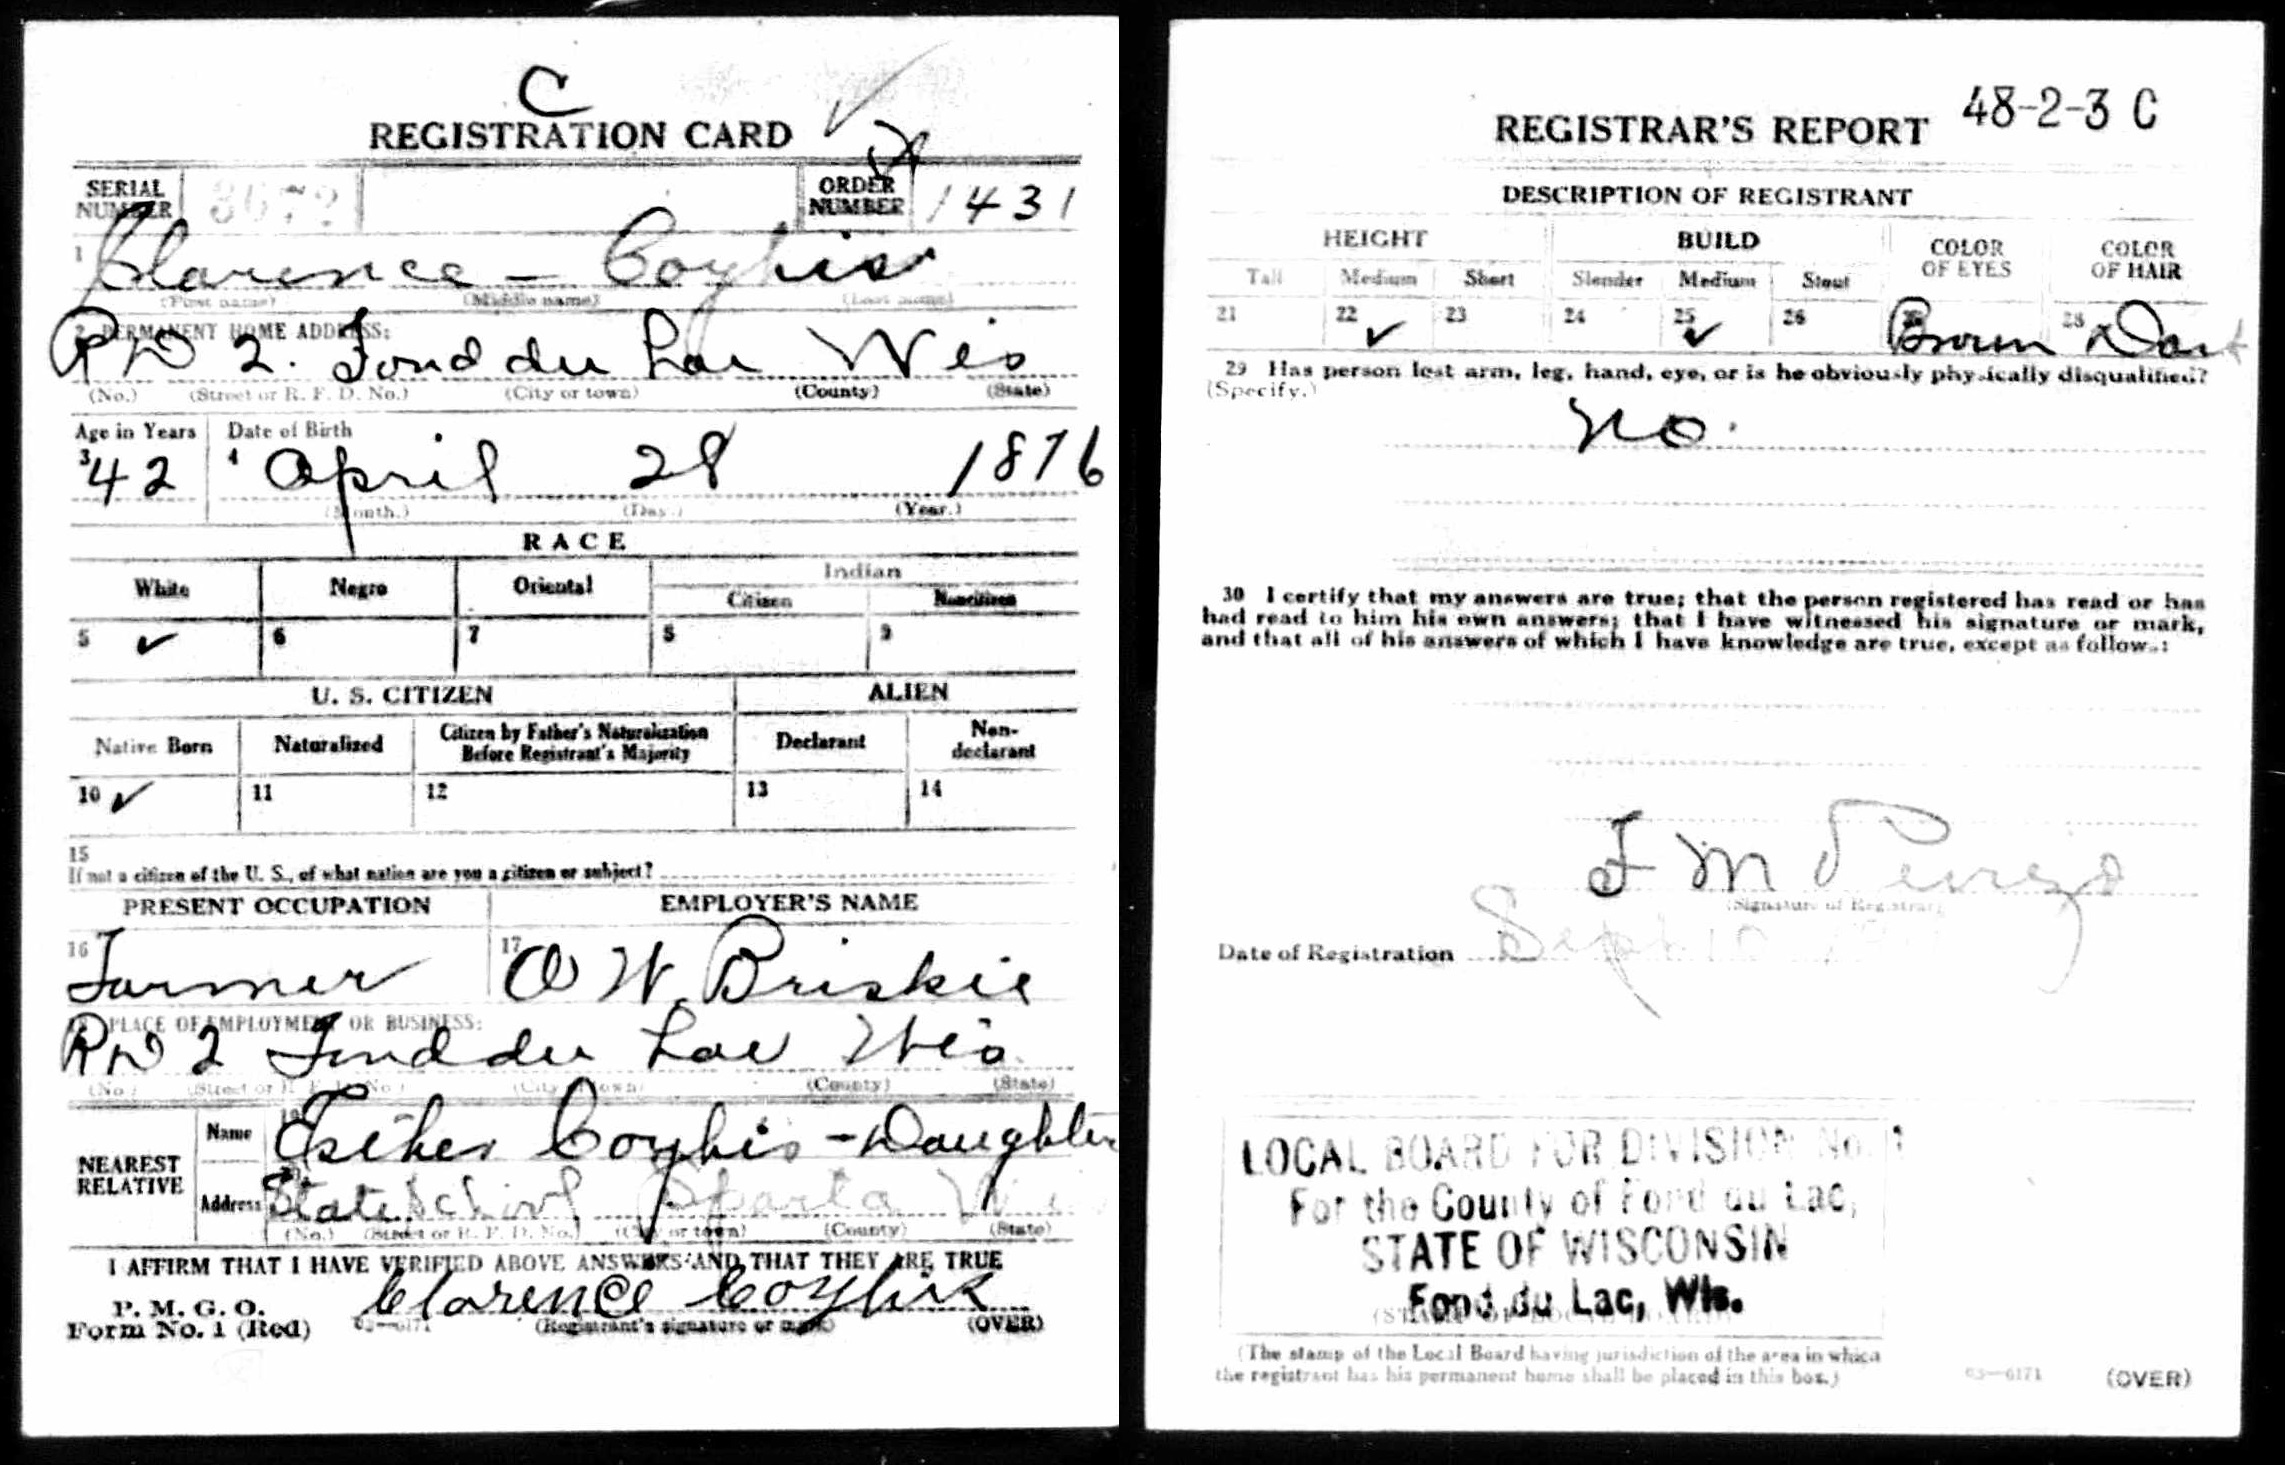 C
REGISTRATION CARD
SERIAL NUMBER
ORDER NUMBER 1431
1 Clarence - Coyhis
(First name) (Middle name) (Last name)
2 PERMANENT HOME ADDRESS:
RD 2. Fond du Lac Wis
(No.) (Street or R. F. D. No.) (City or town) (County) (State)
Age in Years Date of Birth
3 42 4 April 28 1876
(Month.) (Day.) (Year.)
RACE
White Negro Oriental Indian
Citizen Noncitizen
5 ✓ 6 7 8 9
U. S. CITIZEN ALIEN
Native Born Naturalized Citizen by Father's Naturalization Before Registrant's Majority Declarant Non-declarant
10 ✓ 11 12 13 14
15
If not a citizen of the U. S., of what nation are you a citizen or subject?
PRESENT OCCUPATION EMPLOYER'S NAME
16 Farmer 17 O W. Briskie
18 PLACE OF EMPLOYMENT OR BUSINESS:
RD 2 Fond du Lac Wis.
(No.) (Street or R. F. D. No.) (City or town) (County) (State)
NEAREST RELATIVE
Name 19 Esther Coyhis - Daughter
Address 20 State School Sparta Wis
(No.) (Street or R. F. D. No.) (City or town) (County) (State)
I AFFIRM THAT I HAVE VERIFIED ABOVE ANSWERS AND THAT THEY ARE TRUE
P. M. G. O.
Form No. 1 (Red) 03—6171 Clarence Coyhis
(Registrant's signature or mark) (OVER)
REGISTRAR'S REPORT 48-2-3 C
DESCRIPTION OF REGISTRANT
HEIGHT BUILD COLOR OF EYES COLOR OF HAIR
Tall Medium Short Slender Medium Stout
21 22 ✓ 23 24 25 ✓ 26 27 Brown 28 Dark
29 Has person lost arm, leg, hand, eye, or is he obviously physically disqualified?
(Specify.)
No.
30 I certify that my answers are true; that the person registered has read or has
had read to him his own answers; that I have witnessed his signature or mark,
and that all of his answers of which I have knowledge are true, except as follows:
F M
(Signature of Registrar)
Date of Registration Sept 12
LOCAL BOARD FOR DIVISION No. 1
For the County of Fond du Lac,
STATE OF WISCONSIN
Fond du Lac, Wis.
(STAMP OF LOCAL BOARD)
(The stamp of the Local Board having jurisdiction of the area in which
the registrant has his permanent home shall be placed in this box.)
03—6171 (OVER)